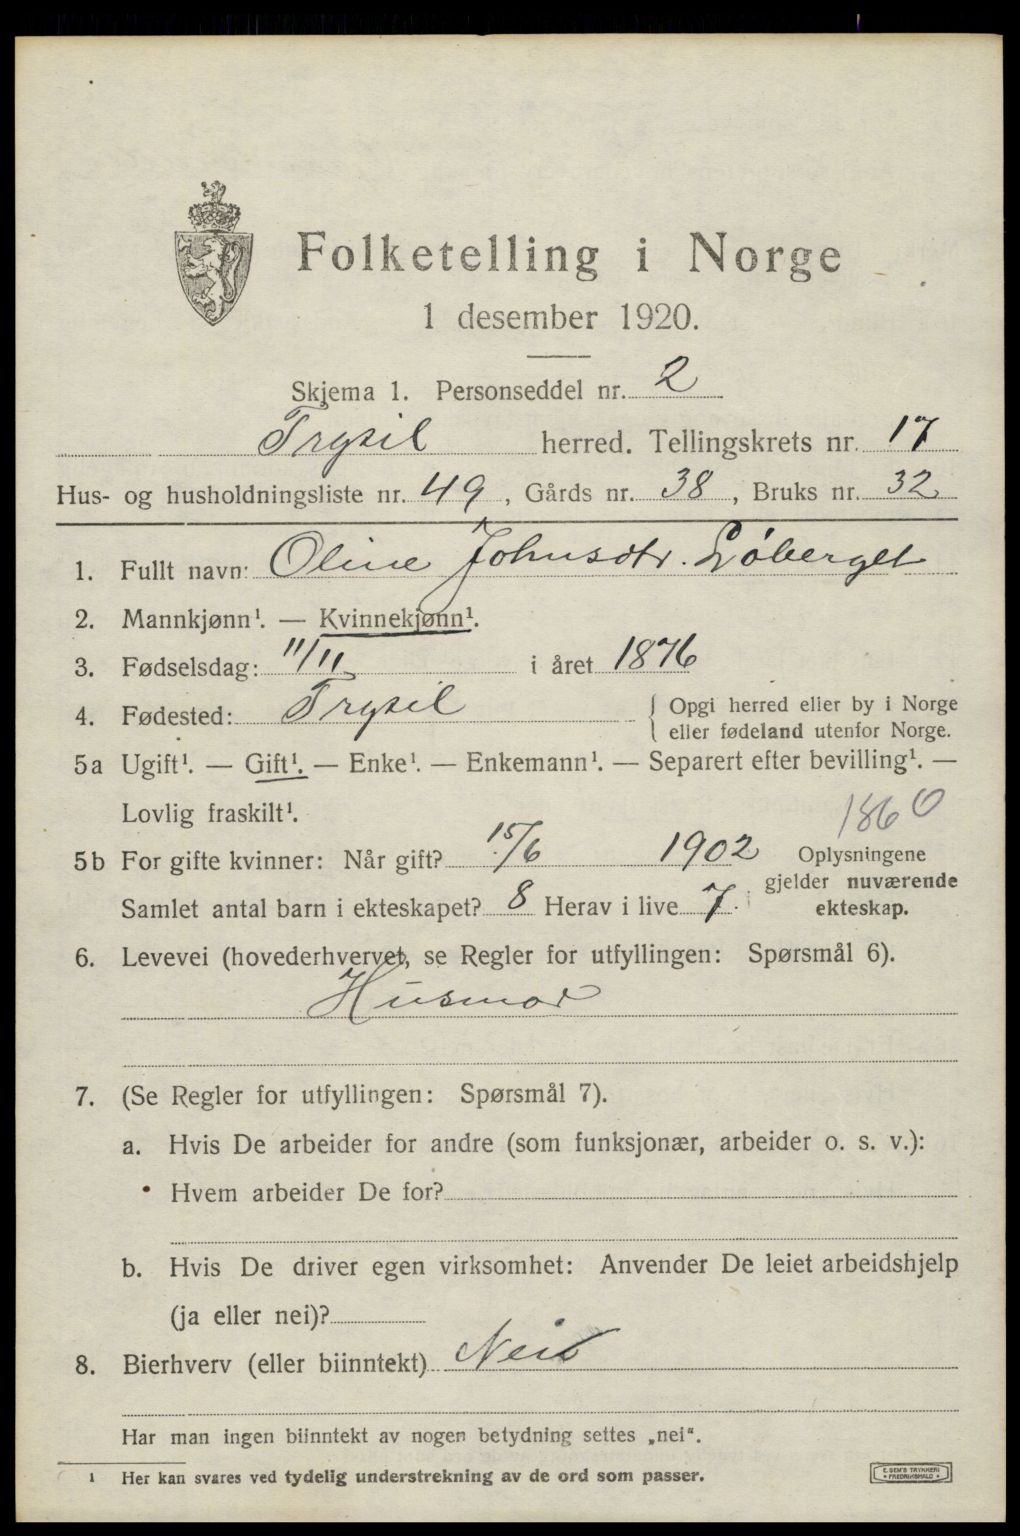 Folketelling i Norge
1 desember 1920.
Skjema 1. Personseddel nr. 2
Trysil herred. Tellingskrets nr. 17
Hus- og husholdningsliste nr. 49, Gårds nr. 38, Bruks nr. 32
1. Fullt navn: Oline Johnsdtr. Løberget
2. Mannkjønn¹. — Kvinnekjønn¹.
3. Fødselsdag: 11/11 i året 1876
4. Fødested: Trysil { Opgi herred eller by i Norge
eller fødeland utenfor Norge.
5a Ugift¹. — Gift¹. — Enke¹. — Enkemann¹. — Separert efter bevilling¹. —
Lovlig fraskilt¹.
1860
5b For gifte kvinner: Når gift? 15/6 1902 Oplysningene
gjelder nuværende
Samlet antal barn i ekteskapet? 8 Herav i live 7. ekteskap.
6. Levevei (hovederhvervet, se Regler for utfyllingen: Spørsmål 6).
Husmor
7. (Se Regler for utfyllingen: Spørsmål 7).
a. Hvis De arbeider for andre (som funksjonær, arbeider o. s. v.):
Hvem arbeider De for?
b. Hvis De driver egen virksomhet: Anvender De leiet arbeidshjelp
(ja eller nei)?
8. Bierhverv (eller biinntekt) Nei
Har man ingen biinntekt av nogen betydning settes „nei“.
¹ Her kan svares ved tydelig understrekning av de ord som passer.
E. SEM'S TRYKKERI
• FREDRIKSHALD •